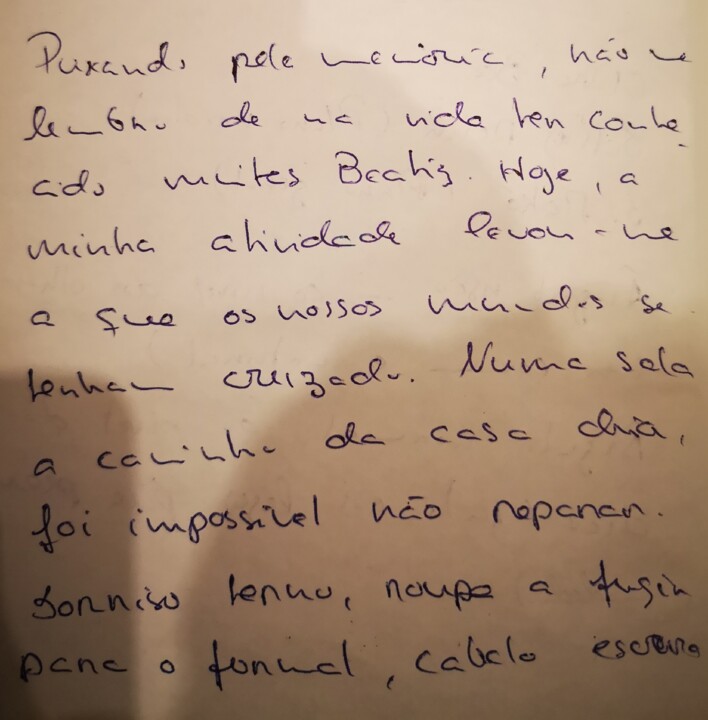 Puxando pela memória, não me
lembro de na vida ter conhe
cido muitas Beatriz. Hoje, a
minha atividade levou-me
a que os nossos mundos se
tenham cruizado. Numa sala
a caminho da casa cheia,
foi impossível não reparar.
Sorriso tenro, roupa a fugir
para o formal, cabelo escuro